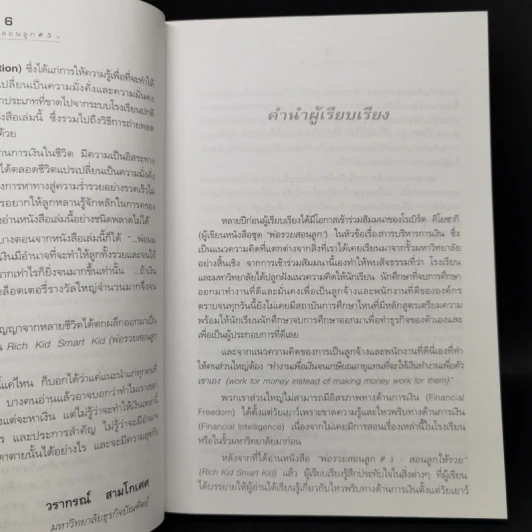 6
สอนลูก # 3 •
tion) ซึ่งได้แก่การให้ความรู้เพื่อที่จะทำให้
เปลี่ยนเป็นความมั่งคั่งและความมั่นคง
าประเภทที่ขาดไปจากระบบโรงเรียนปกติ
ังสือเล่มนี้ ซึ่งรวมไปถึงวิธีการถ่ายทอด
ด้วย
านการเงินในชีวิต มีความเป็นอิสระทาง
ได้ตลอดชีวิตแปรเปลี่ยนเป็นความมั่งคั่ง
งการหาทางสู่ความร่ำรวยอย่างรวดเร็วไม่
รอยากให้ลูกหลานรู้จักหลักในการครอง
งอ่านหนังสือเล่มนี้อย่างชนิดพลาดไม่ได้
บางตอนจากหนังสือเล่มนี้ก็ได้ "...พ่อผม
เงินมีอำนาจที่จะทำให้ลูกทั้งรวยและจนได้
ากเท่าไรก็ยิ่งจนมากขึ้นเท่านั้น ...ถ้าเงิน
ล็อตเตอรี่รางวัลใหญ่จำนวนมากจึงจน
ญญาจากหลายชีวิตได้ตกผลึกออกมาเป็น
น Rich Kid Smart Kid (พ่อรวยสอนลูก
แค่ไหน ก็บอกได้ว่าแค่แนะนำแก่ทุกคนที่
บางคนอ่านแล้วอาจบอกว่าทำไมเราเขลา
แต่จะหาเงิน แต่ไม่รู้ว่าจะทำให้เงินเหล่านี้
ร และประการสำคัญ ไม่รู้ว่าจะมีอำนาจ
าตายนั้นได้อย่างไร และจะมีความสุขกับ
วรากรณ์ สามโกเศศ
มหาวิทยาลัยธุรกิจบัณฑิตย์
คำนำผู้เรียบเรียง
หลายปีก่อนผู้เรียบเรียงได้มีโอกาสเข้าร่วมสัมมนาของโรเบิร์ต คิโยซากิ
(ผู้เขียนหนังสือชุด "พ่อรวยสอนลูก") ในหัวข้อเรื่องการบริหารการเงิน ซึ่ง
เป็นแนวความคิดที่แตกต่างจากสิ่งที่เราได้เคยเรียนมาจากรั้วมหาวิทยาลัย
อย่างสิ้นเชิง จากการเข้าร่วมสัมมนานี้เองทำให้พบสัจธรรมที่ว่า โรงเรียน
และมหาวิทยาลัยได้ปลูกฝังแนวความคิดให้นักเรียน นักศึกษาที่จบการศึกษา
ออกมาทำงานที่ดีและมั่นคงเพื่อเป็นลูกจ้างและพนักงานที่ดีขององค์กร
ตราบจนทุกวันนี้ยังไม่เคยมีสถาบันการศึกษาไหนที่มีหลักสูตรเตรียมความ
พร้อมให้นักเรียนนักศึกษาจบการศึกษาออกมาเพื่อทำธุรกิจของตัวเองและ
เพื่อเป็นผู้ประกอบการที่ดีเลย
และจากแนวความคิดของการเป็นลูกจ้างและพนักงานที่ดีนี่เองที่ทำ
ให้คนส่วนใหญ่ต้อง "ทำงานเพื่อเงินจนเกษียณอายุแทนที่จะให้เงินทำงานเพื่อตัว
เราเอง (work for money instead of making money work for them)"
พวกเราส่วนใหญ่ไม่สามารถมีอิสรภาพทางด้านการเงิน (Financial
Freedom) ได้ตั้งแต่วัยเยาว์เพราะขาดความรู้และไหวพริบทางด้านการเงิน
(Financial Intelligence) เนื่องจากไม่เคยมีการสอนเรื่องเหล่านี้ในโรงเรียน
หรือในรั้วมหาวิทยาลัยมาก่อน
หลังจากที่ได้อ่านหนังสือ "พ่อรวยสอนลูก # 3 : สอนลูกให้รวย"
(Rich Kid Smart Kid) แล้ว ผู้เรียบเรียงรู้สึกประทับใจในสิ่งต่างๆ ที่ผู้เขียน
ได้บรรยายให้ผู้อ่านได้เรียนรู้เกี่ยวกับไหวพริบทางด้านการเงินตั้งแต่วัยเยาว์